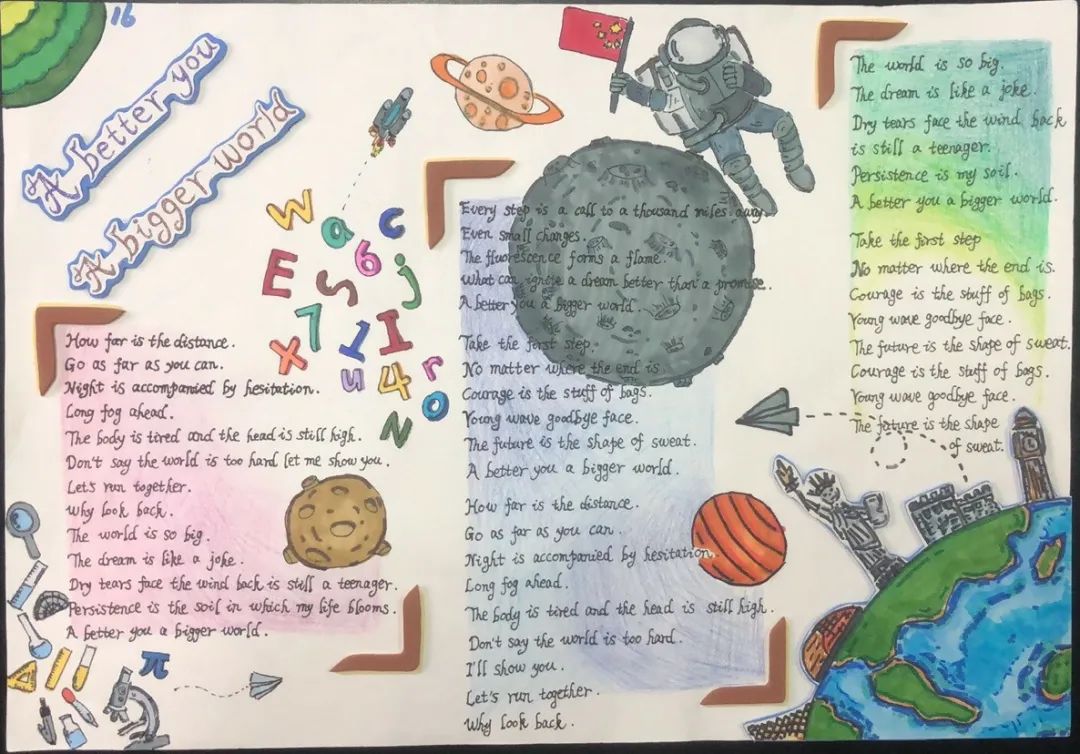 16
A better you
A bigger world
W a c
E S 6 j
7 1 I
x u 4 r
N o
How far is the distance.
Go as far as you can.
Night is accompanied by hesitation.
Long fog ahead.
The body is tired and the head is still high.
Don't say the world is too hard let me show you.
Let's run together.
Why look back.
The world is so big.
The dream is like a joke.
Dry tears face the wind back is still a teenager.
Persistence is the soil in which my life blooms.
A better you a bigger world.
π
Every step is a call to a thousand miles away
Even small changes.
The fluorescence forms a flame.
What can ignite a dream better than a promise.
A better you a bigger world.
Take the first step
No matter where the end is
Courage is the stuff of bags.
Young wave goodbye face.
The future is the shape of sweat.
A better you a bigger world.
How far is the distance.
Go as far as you can.
Night is accompanied by hesitation.
Long fog ahead.
The body is tired and the head is still high.
Don't say the world is too hard.
I'll show you.
Let's run together.
Why look back.
The world is so big.
The dream is like a joke.
Dry tears face the wind back
is still a teenager.
Persistence is my soil.
A better you a bigger world.
Take the first step
No matter where the end is.
Courage is the stuff of bags.
Young wave goodbye face.
The future is the shape of sweat.
Courage is the stuff of bags.
Young wave goodbye face.
The future is the shape
of sweat.